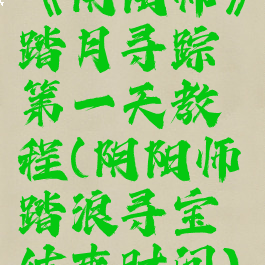 《阴阳师》
踏月寻踪
第一天教
程(阴阳师
踏浪寻宝
结束时间)